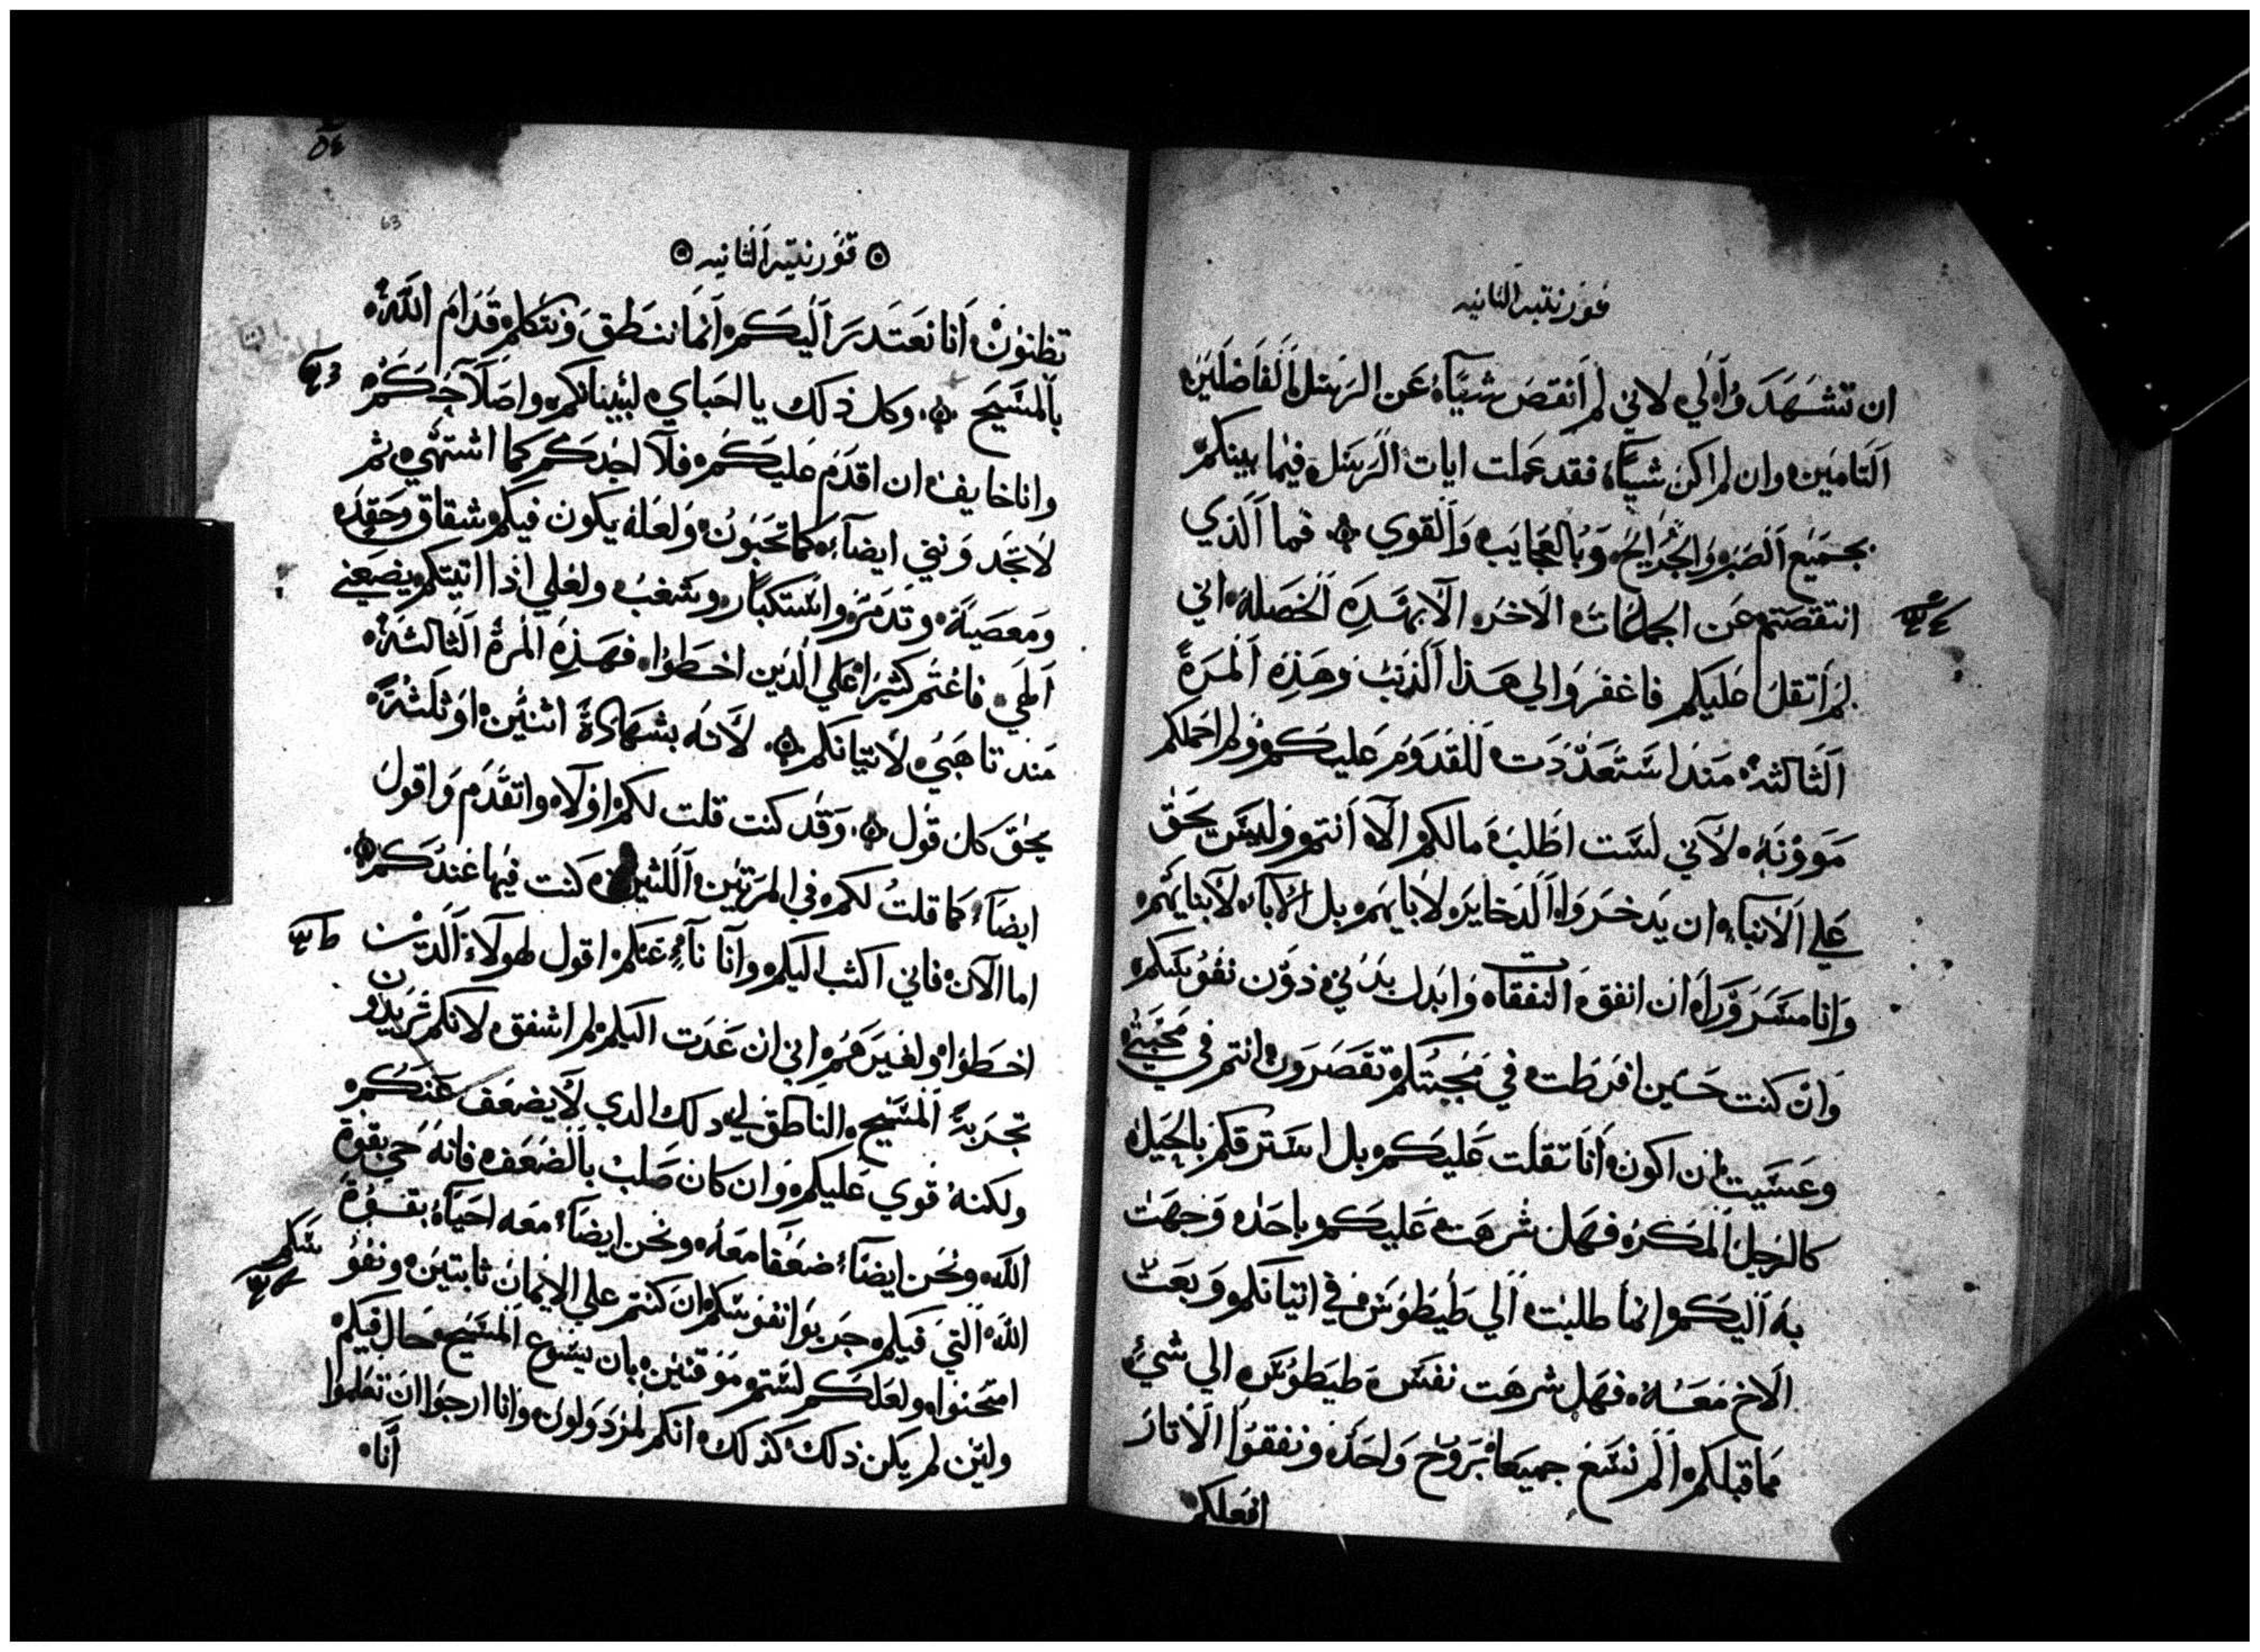 قورنتيه الثانيه
ان تشهدوا لي لاني لم انقص شيآء عن الرسل الفاضلين
التامين وان لم اكن شيآء فقد عملت ايات الرسل فيما بينكم
بجميع الصبر والجرايح وبالعجايب والقوي فما الذي
انتقصتم عن الجماعات الاخر الا بهذه الخصله اني
لم اتقل عليكم فاغفروا لي هذا الذنب وهذه المرة
الثالثة منذ استعددت للقدوم عليكم ولم احملكم
موونه لاني لست اطلب مالكم الا انتم وليس يحق
علي الابناء ان يدخروا الدخاير لابايهم بل الاباء لابنايهم
وانا مسرورا ان انفق النفقاة وابدل بدني دون نفوسكم
وان كنت حين افرطت في محبتكم تقصرون انتم في محبتي
وعسيت ان اكون انا تقلت عليكم بل استرقكم بالحيل
كالرجل المكر فهل شرهت عليكم باحد وجهت
به اليكم وانما طلبت الي طيطوس في اتيانكم وبعت
الاخ معه فهل شرهت نفس طيطوس الي شي
مما قبلكم الم نسع جميعا بروح واحد ونفقوا الاتار
افعلكم
63
قورنتيه الثانيه
تظنون انا نعتدر اليكم انما ننطق ونتكلم قدام الله
بالمسيح وكل ذلك يا احباي لبنيانكم واصلاحكم
وانا خايف ان اقدم عليكم فلا اجدكم كما اشتهي ثم
لا تجدونني ايضاء كما تحبون ولعله يكون فيكم شقاق وحقد
ومعصية وتدمر واستكبار وشغب ولعلي اذا اتيتكم يضعني
الهي فاغتم كثيرا علي الذين اخطوا فهذه المرة الثالثة
منذ تاهبي لاتيانكم لانه بشهادة اثنين او ثلثة
يحق كل قول وقد كنت قلت لكم اولا واتقدم واقول
ايضاء كما قلت لكم في المرتين اللتين كنت فيها عندكم
اما الان فاني اكتب اليكم وانا نآء عنكم اقول لهولاء الدين
اخطوا ولغيرهم اني ان عدت اليكم لم اشفق لانكم تريدون
تجربة المسيح الناطق في دلك الدي لا يضعف عندكم
ولكنه قوي عليكم وان كان صلب بالضعف فانه حي بقوة
الله ونحن ايضاء ضعفا معه ونحن ايضاء معه احياء بقوة
الله التي فيكم جربوا انفوسكم ان كنتم علي الايمان ثابتين ونفوسكم
امتحنوا ولعلكم لستم موقنين بان يسوع المسيح حال فيكم
ولين لم يكن ذلك كذلك انكم لمردولون وانا ارجوا ان تعلموا
انا